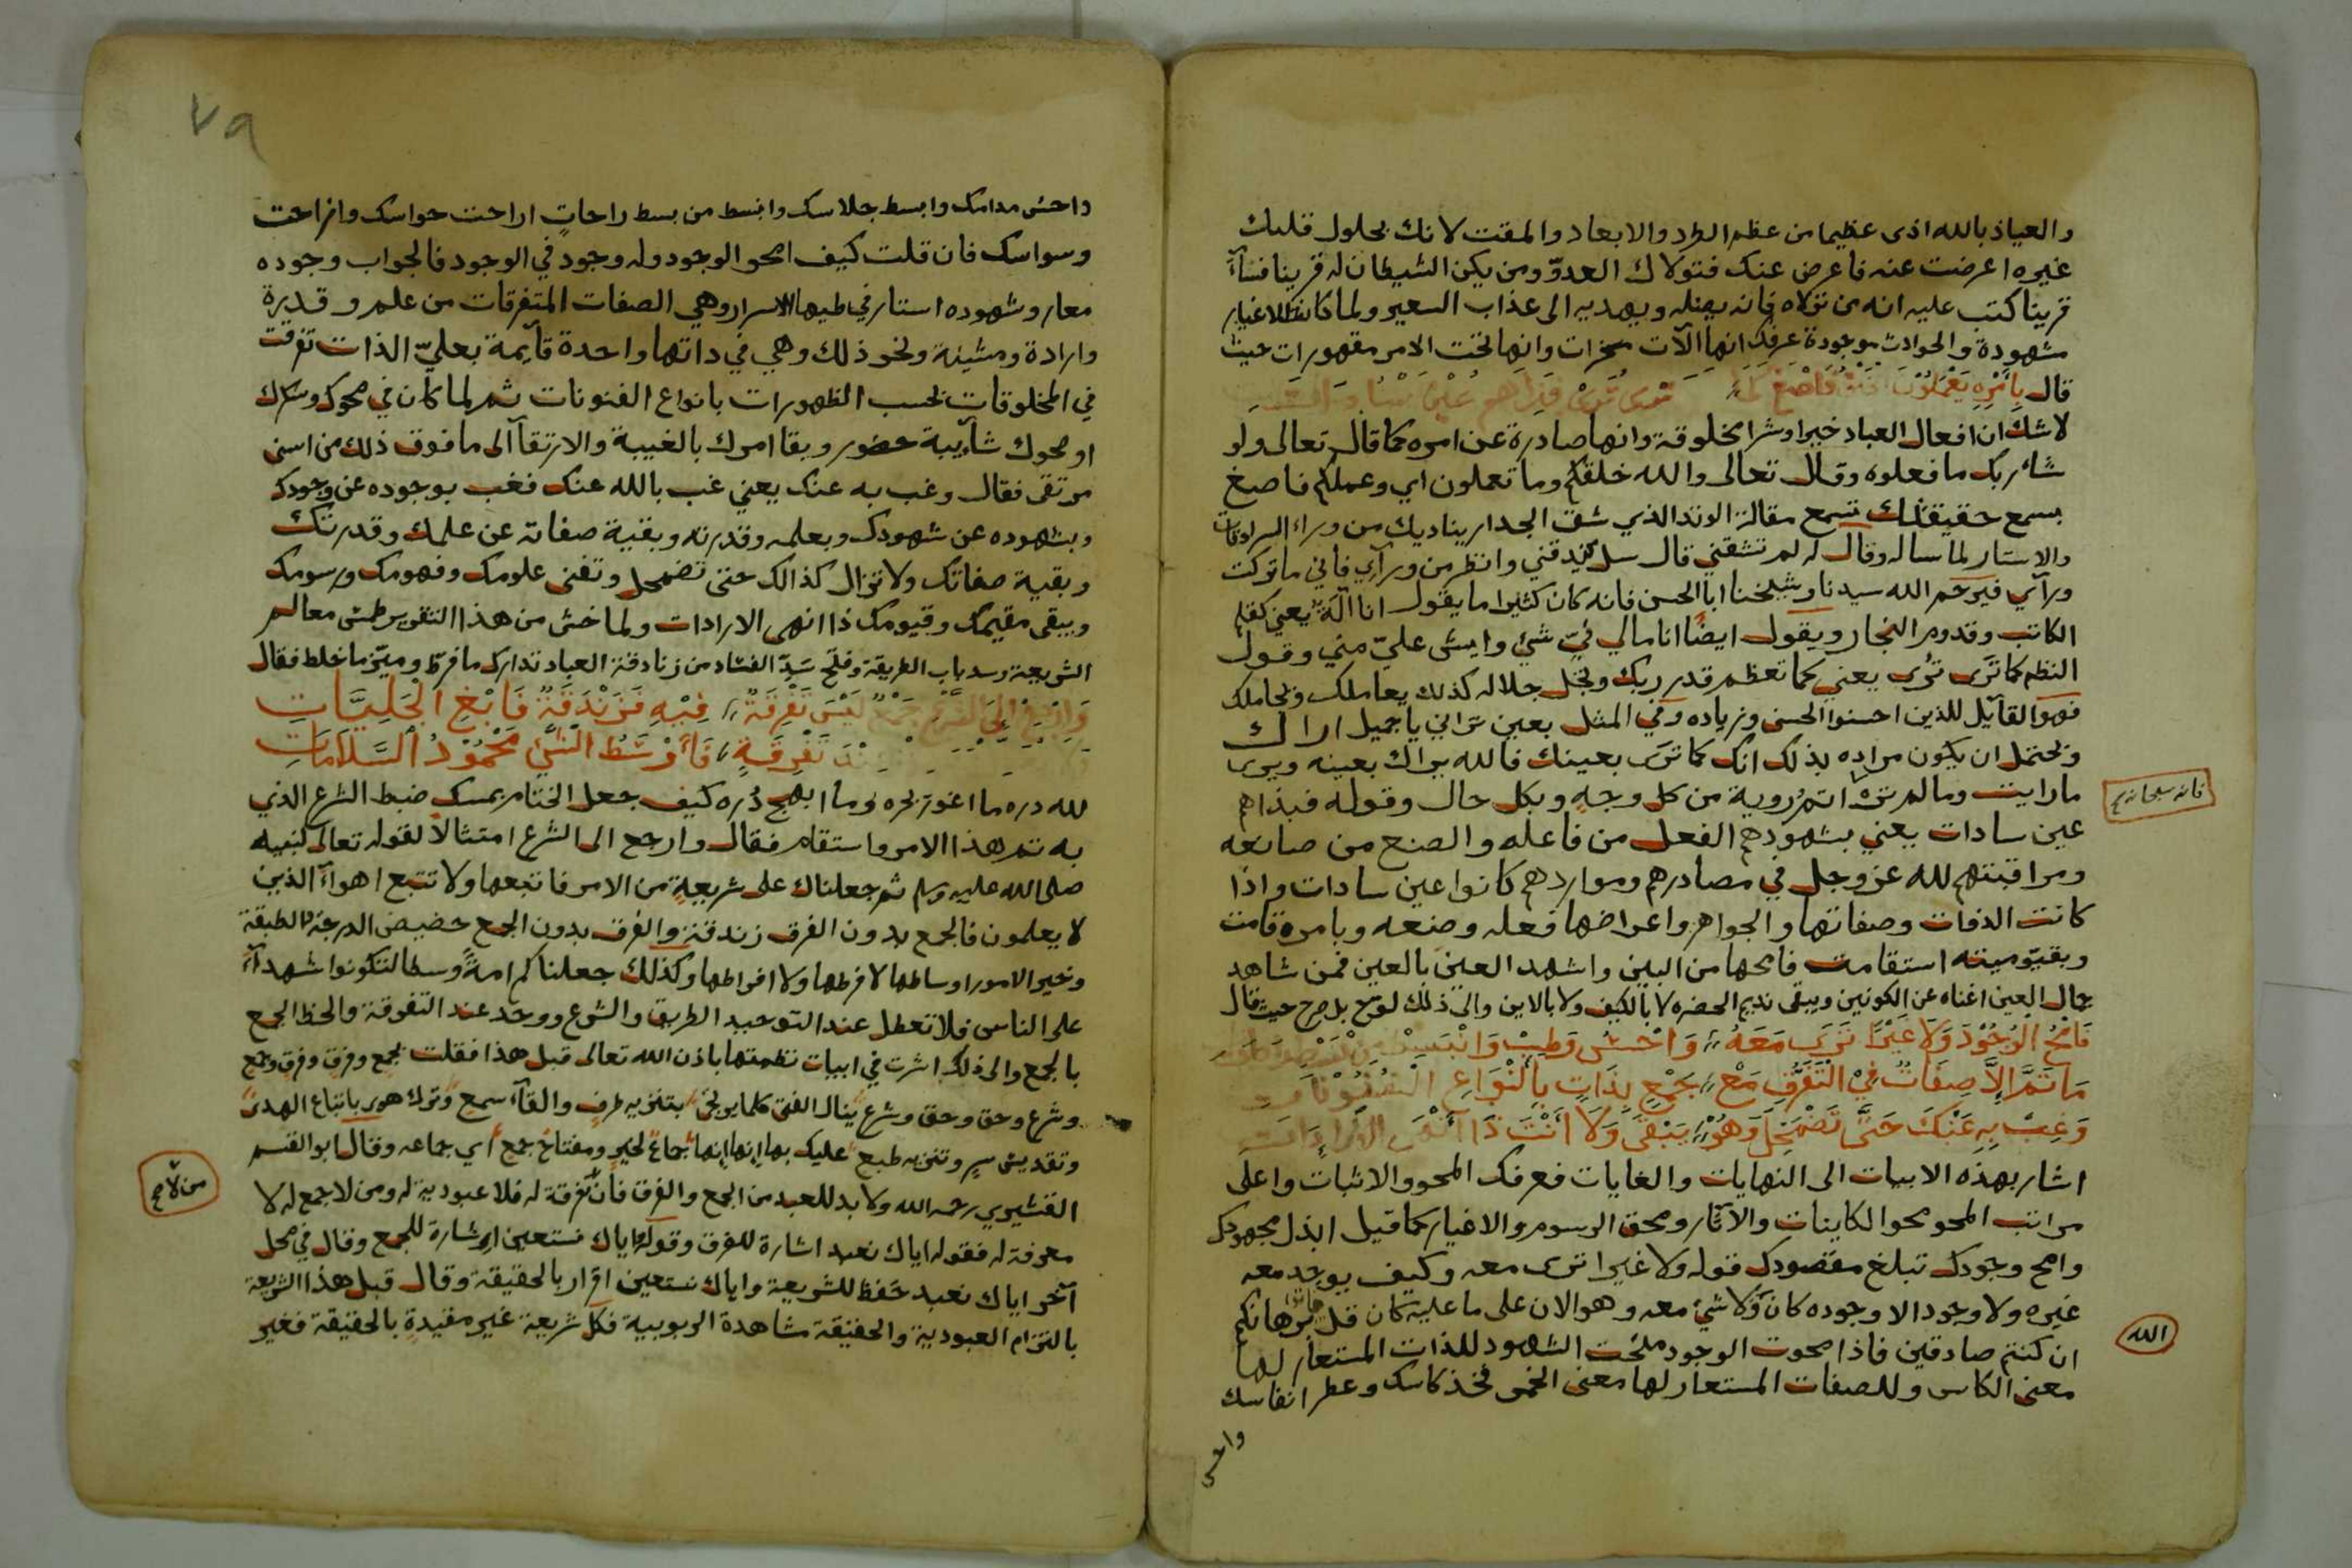 والعياذ بالله اذى عظيما من عظم الطرد والابعاد والمقت لانك بحلول قلبك
غيره اعرضت عنه فاعرض عنك فتولاك العدوّ ومن يكن الشيطان له قرينا فسآء
قرينا كتب عليه انه من تولاه فانه يضله ويهديه الى عذاب السعير ولما كانت الاغيار
مشهودة والحوادث موجودة عرفك انها الآت مسخرات وانها تحت الامر مقهورات حيث
قال بِأَمْرِهِ يَعْمَلُوْنَ فَاصْغَ تَرَى تُرَى فَبِذَا هُم عَيْنُ سَادَات
لاشك ان افعال العباد خيرا وشرا مخلوقة وانها صادرة عن امره كما قال تعالى ولو
شاء ربك ما فعلوه وقال تعالى والله خلقكم وما تعملون اي وعملكم فاصغ
بسمع حقيقتك تسمع مقالة الوتد الذي شق الجدار يناديك من وراء السرادقات
والاستار لما ساله وقال له لم تشقني قال سل من يدقني وانظر من ورآي فاني ما تركت
ورآي فيرحم الله سيدنا وشيخنا ابا الحسن فانه كان كثيرا ما يقول انا آلة يعني كقلم
الكاتب وقدوم النجار ويقول ايضًا انا مالي فيّ شئ وايش عليّ مني وقول
النظم كما ترَى تُرى يعني كما تعظم قدر ربك وتجل جلاله كذلك يعاملك ويجاملك
فهو القآئل للذين احسنوا الحسنى وزياده وفي المثل بعين تراني يا جميل اراك
ويحتمل ان يكون مراده بذلك انك كما ترى بعينك فالله يراك بعينه ويرى
ما رايت وما لم تر اتم روية من كل وجهٍ وبكل حال وقوله فبذا هم
فانه سبحانه صح
عين سادات يعني بشهودهم الفعل من فاعله والصنع من صانعه
ومراقبتهم لله عز وجل في مصادرهم ومواردهم كانوا عين سادات واذا
كانت الذوات وصفاتها والجواهر واعراضها فعله وصنعه وبامره قامت
وبقيّوميته استقامت فامحها من البين واشهد العين بالعين فمن شاهد
جمال العين اغناه عن الكونين ويبقى نديم الحضره لا بالكيف ولا بالاين والى ذلك لوّح بل صرح حيث قال
فَامْحُ الوُجُوْدَ وَلَا غَيْرًا تَرَى مَعَهُ وَاحْسُ وَطِبْ وَانْبَسِطْ مِنْ بَسْطِ
مَا ثَمَّ إِلَّا صِفَاتٌ فِيْ التَّفَرُّقِ مَعْ جَمْعٍ بِذَاتٍ بِأَنْوَاعِ الْفُنُوْنَاتِ
وَغِبْ بِهِ عَنْكَ حَتَّى تَضْمَحِلَّ وَهُوْ يَبْقَى وَلَا أَنْتَ ذَا أَنْهَى الْإِرَادَاتِ
اشار بهذه الابيات الى النهايات والغايات فعرفك المحو والاثبات واعلى
مراتب المحو محو الكاينات والآثار ومحق الرسوم والاغيار كما قيل ابذل مجهودك
وامح وجودك تبلغ مقصودك قوله ولا غيرا ترى معه وكيف يوجد معه
غيره ولا وجود الا وجوده كان ولا شئ معه وهو الان على ما عليه كان قل هاتوا برهانكم
الله
ان كنتم صادقين فاذا محوت الوجود منحت الشهود للذات المستعار لها
معنى الكاس وللصفات المستعار لها معنى الخمر فخذ كاسك وعطر انفاسك
واحس
٧٩
واحس مدامك وابسط جلاسك وانبسط من بسط راحاتٍ اراحت حواسك وازاحت
وسواسك فان قلت كيف امحو الوجود وله وجود في الوجود فالجواب وجوده
معار وشهوده استار في طيها الاسرار وهي الصفات المتفرقات من علم وقديرة
وارادة ومشيئة ونحو ذلك وهي في ذاتها واحدة قآيمة بعليّ الذات تفرقت
في المخلوقات بحسب الظهورات بانواع الفنونات ثم لما كان في محوك وسكرك
او صحوك شآيبة حضور وبقا امرك بالغيبة والارتقآ الى ما فوق ذلك من اسنى
مرتقى فقال وغب به عنك يعني غب بالله عنك فغب بوجوده عن وجودك
وبشهوده عن شهودك وبعلمه وقدرته وبقية صفاته عن علمك وقدرتك
وبقية صفاتك ولا تزال كذالك حتى تضمحل وتفنى علومك وفهومك ورسومك
ويبقى مقيمك وقيومك ذا انهى الارادات ولما خشى من هذا التقرير طمس معالم
الشريعة وسد باب الطريقة وفتح سَدِّ الفساد من زنادقة العباد تدارك ما فرط وميّز ما خلط فقال
وَارْجِعْ إِلَى الشَّرْعِ جَمْعٌ لَيْسَ تَفْرِقَةٌ فِيْهِ فَزَنْدَقَةٌ فَابْغِ الْجَلِيَّاتِ
تَفْرِقَةٍ فَأَوْسَطُ الشَّيْ مَحْمُوْدُ السَّلَامَاتِ
لله دره ما اغور بحره وما ابهج دُره كيف جعل الختام بمسك ضبط الشرع الذي
به تم هذا الامر واستقام فقال وارجع الى الشرع امتثالا لقوله تعالى لنبيه
صلى الله عليه وسلم ثم جعلناك على شريعةٍ من الامر فاتبعها ولا تتبع اهوآء الذين
لا يعلمون فالجمع بدون الفرق زندقة والفرق بدون الجمع حضيض الدرجة والطبقة
وخير الامور اوساطها لا فرطها ولا افراطها وكذلك جعلناكم امةً وسطا لتكونوا شهدآء
على الناس فلا تعطل عند التوحيد الطريق والشرع ووحّد عند التفرقة والحظ الجمع
بالجمع والى ذلك اشرت في ابيات نظمتها باذن الله تعالى قبل هذا فقلت بجمع وفرق وفرق وجمع
وشرع وحق وحق وشرع ينال الفتى كلما يرتجى بتنزيه طرف والقآء سمع وترك هوى باتباع الهدى
وتقديس سرٍ وتنزيه طبع عليك بها انها انها جماع لخير ومفتاح جمع أي جماعه وقال ابو القسم
القشيري رحمه الله ولا بد للعبد من الجمع والفرق فان تفرقة له فلا عبودية له ومن لا جمع له لا
من لا صح
معرفة له فقوله اياك نعبد اشارة للفرق وقوله واياك نستعين اشارة للجمع وقال في محل
آخر اياك نعبد حفظ للشريعة واياك نستعين اقرار بالحقيقة وقال قبل هذا الشريعة
بالتزام العبودية والحقيقة مشاهدة الربوبية فكل شريعة غير مقيدة بالحقيقة فغير